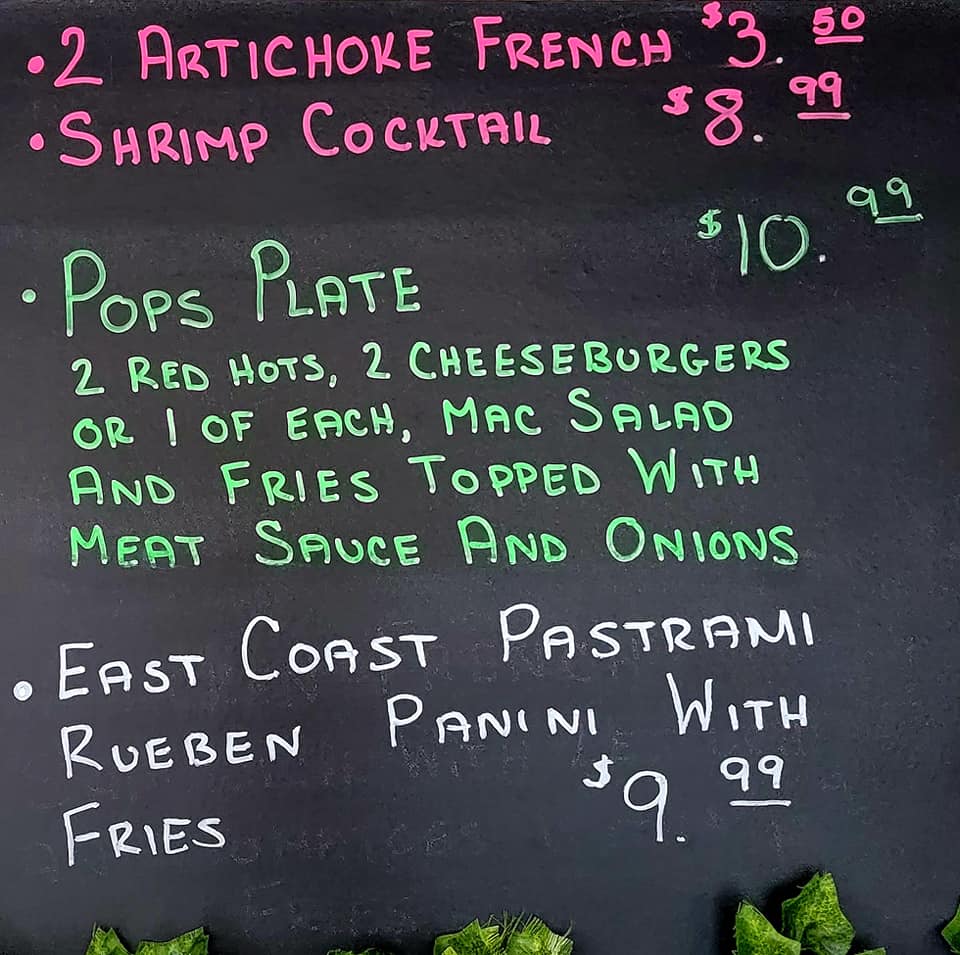 • 2 ARTICHOKE FRENCH $3.50
• SHRIMP COCKTAIL $8.99
$10.99
• POPS PLATE
2 RED HOTS, 2 CHEESEBURGERS
OR 1 OF EACH, MAC SALAD
AND FRIES TOPPED WITH
MEAT SAUCE AND ONIONS
• EAST COAST PASTRAMI
RUEBEN PANINI WITH
FRIES $9.99